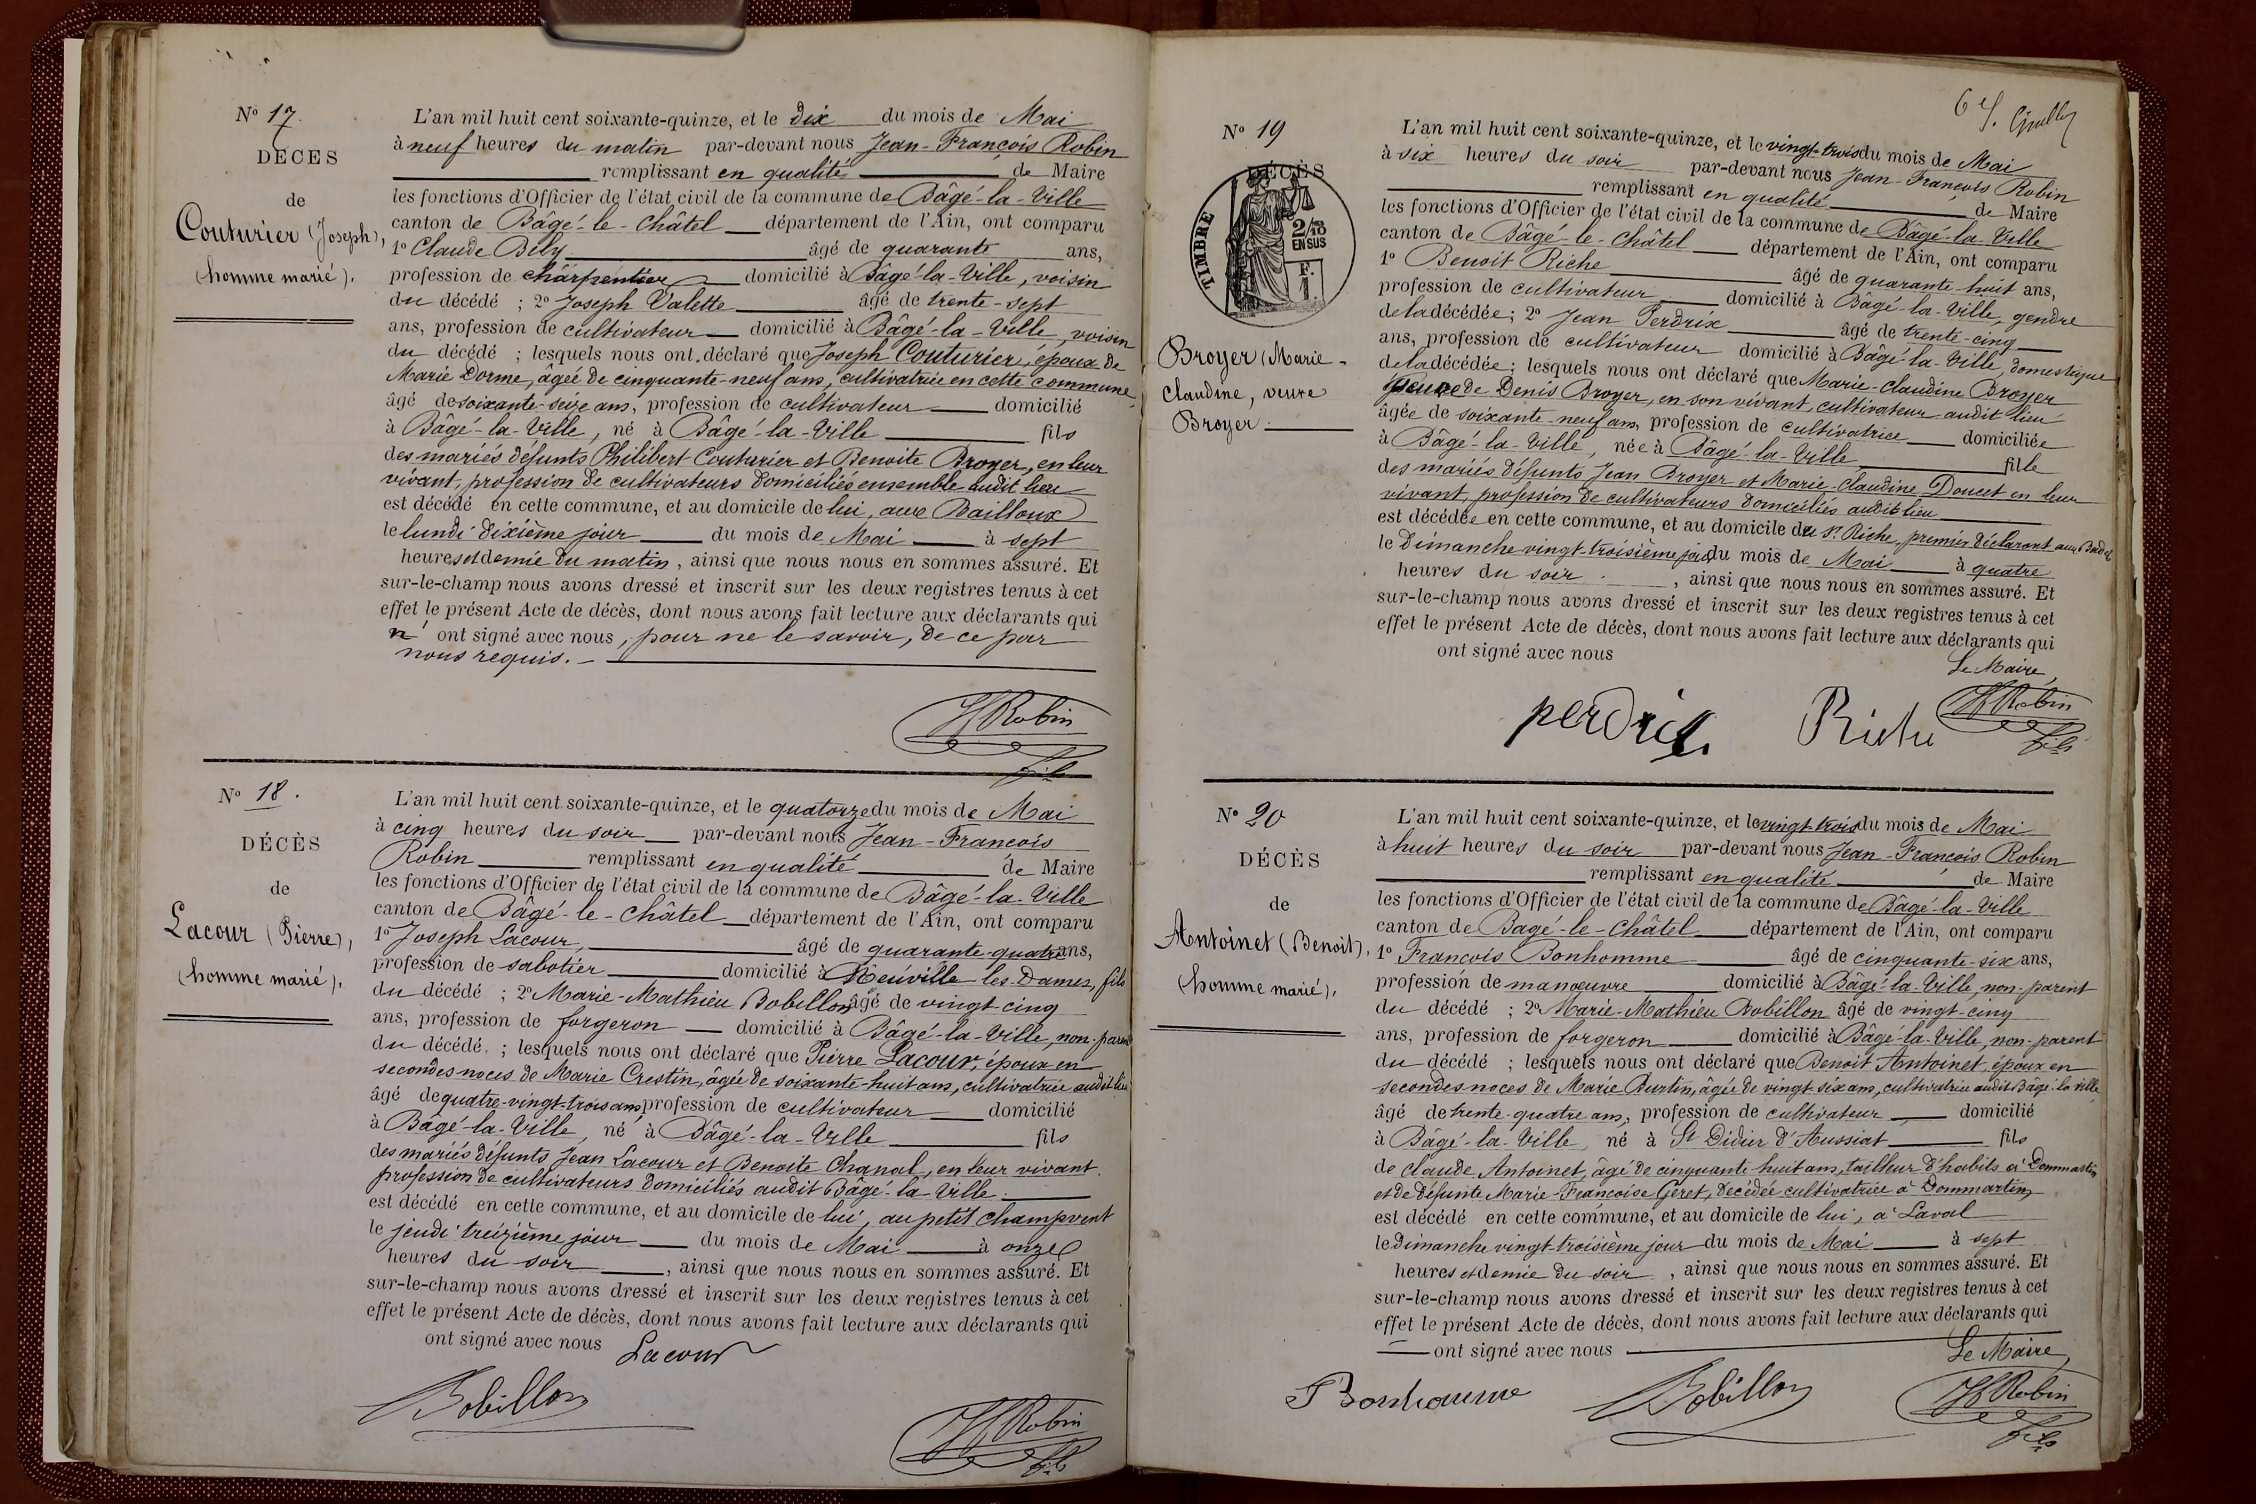 Nº 17.
DÉCÈS
de
Couturier (Joseph),
(homme marié).
L'an mil huit cent soixante-quinze, et le dix du mois de Mai
à neuf heures du matin par-devant nous Jean-François Robin
remplissant en qualité de Maire
les fonctions d'Officier de l'état civil de la commune de Bâgé-la-Ville
canton de Bâgé-le-Châtel département de l'Ain, ont comparu
1º Claude Bély âgé de quarante ans,
profession de charpentier domicilié à Bâgé-la-Ville, voisin
du décédé ; 2º Joseph Valette âgé de trente-sept
ans, profession de cultivateur domicilié à Bâgé-la-Ville, voisin
du décédé ; lesquels nous ont déclaré que Joseph Couturier, époux de
Marie Dorme, âgée de cinquante-neuf ans, cultivatrice en cette commune,
âgé de soixante-seize ans, profession de cultivateur domicilié
à Bâgé-la-Ville, né à Bâgé-la-Ville fils
des mariés défunts Philibert Couturier et Benoite Broyer, en leur
vivant, profession de cultivateurs domiciliés ensemble audit lieu
est décédé en cette commune, et au domicile de lui, aux Bailloux
le lundi dixième jour du mois de Mai à sept
heures et demie du matin, ainsi que nous nous en sommes assuré. Et
sur-le-champ nous avons dressé et inscrit sur les deux registres tenus à cet
effet le présent Acte de décès, dont nous avons fait lecture aux déclarants qui
n'ont signé avec nous, pour ne le savoir, de ce par
nous requis.
JF Robin
fils
Nº 18.
DÉCÈS
de
Lacour (Pierre),
(homme marié).
L'an mil huit cent soixante-quinze, et le quatorze du mois de Mai
à cinq heures du soir par-devant nous Jean-François
Robin remplissant en qualité de Maire
les fonctions d'Officier de l'état civil de la commune de Bâgé-la-Ville
canton de Bâgé-le-Châtel département de l'Ain, ont comparu
1º Joseph Lacour, âgé de quarante-quatre ans,
profession de sabotier domicilié à Neuville-les-Dames, fils
du décédé ; 2º Marie-Mathieu Bobillon âgé de vingt-cinq
ans, profession de forgeron domicilié à Bâgé-la-Ville, non-parent
du décédé ; lesquels nous ont déclaré que Pierre Lacour, époux en
secondes noces de Marie Crestin, âgée de soixante-huit ans, cultivatrice audit lieu
âgé de quatre-vingt-trois ans profession de cultivateur domicilié
à Bâgé-la-Ville, né à Bâgé-la-Ville fils
des mariés défunts Jean Lacour et Benoite Chanal, en leur vivant
profession de cultivateurs domiciliés audit Bâgé-la-Ville
est décédé en cette commune, et au domicile de lui, au petit Champvent
le jeudi treizième jour du mois de Mai à onze
heures du soir, ainsi que nous nous en sommes assuré. Et
sur-le-champ nous avons dressé et inscrit sur les deux registres tenus à cet
effet le présent Acte de décès, dont nous avons fait lecture aux déclarants qui
ont signé avec nous
Lacour
Bobillon
JF Robin
fils
Nº 19
DÉCÈS
TIMBRE
2/10
EN SUS
F.
1.
Broyer (Marie-
Claudine, veuve
Broyer.
L'an mil huit cent soixante-quinze, et le vingt-trois du mois de Mai
à six heures du soir par-devant nous Jean-François Robin
remplissant en qualité de Maire
les fonctions d'Officier de l'état civil de la commune de Bâgé-la-Ville
canton de Bâgé-le-Châtel département de l'Ain, ont comparu
1º Benoit Riche âgé de quarante-huit ans,
profession de cultivateur domicilié à Bâgé-la-Ville, gendre
de la décédée ; 2º Jean Perdrix âgé de trente-cinq
ans, profession de cultivateur domicilié à Bâgé-la-Ville, domestique
de la décédée ; lesquels nous ont déclaré que Marie-Claudine Broyer
veuve de Denis Broyer, en son vivant, cultivateur audit lieu
âgée de soixante-neuf ans, profession de cultivatrice domiciliée
à Bâgé-la-Ville, née à Bâgé-la-Ville fille
des mariés défunts Jean Broyer et Marie-Claudine Doucet en leur
vivant, profession de cultivateurs domiciliés audit lieu
est décédée en cette commune, et au domicile du Sr. Riche, premier déclarant
le Dimanche vingt-troisième jour du mois de Mai à quatre
heures du soir, ainsi que nous nous en sommes assuré. Et
sur-le-champ nous avons dressé et inscrit sur les deux registres tenus à cet
effet le présent Acte de décès, dont nous avons fait lecture aux déclarants qui
ont signé avec nous
Le Maire,
perdrix
Riche
JF Robin
fils
Nº 20
DÉCÈS
de
Antoinet (Benoit),
(homme marié),
L'an mil huit cent soixante-quinze, et le vingt-trois du mois de Mai
à huit heures du soir par-devant nous Jean-François Robin
remplissant en qualité de Maire
les fonctions d'Officier de l'état civil de la commune de Bâgé-la-Ville
canton de Bagé-le-Châtel département de l'Ain, ont comparu
1º François Bonhomme âgé de cinquante-six ans,
profession de manœuvre domicilié à Bâgé-la-Ville, non-parent
du décédé ; 2º Marie-Mathieu Bobillon âgé de vingt-cinq
ans, profession de forgeron domicilié à Bâgé-la-Ville, non-parent
du décédé ; lesquels nous ont déclaré que Benoit Antoinet, époux en
secondes noces de Marie Burtin, âgée de vingt six ans, cultivatrice audit Bâgé-la-Ville
âgé de trente-quatre ans, profession de cultivateur domicilié
à Bâgé-la-Ville, né à St Didier d'Aussiat fils
de Claude Antoinet, âgé de cinquante huit ans, tailleur d'habits à Dommartin
et de défunte Marie-Françoise Geret, décédée cultivatrice à Dommartin
est décédé en cette commune, et au domicile de lui, à Laval
le Dimanche vingt-troisième jour du mois de Mai à sept
heures et demie du soir, ainsi que nous nous en sommes assuré. Et
sur-le-champ nous avons dressé et inscrit sur les deux registres tenus à cet
effet le présent Acte de décès, dont nous avons fait lecture aux déclarants qui
ont signé avec nous
Le Maire,
Bonhomme
Bobillon
JF Robin
fils